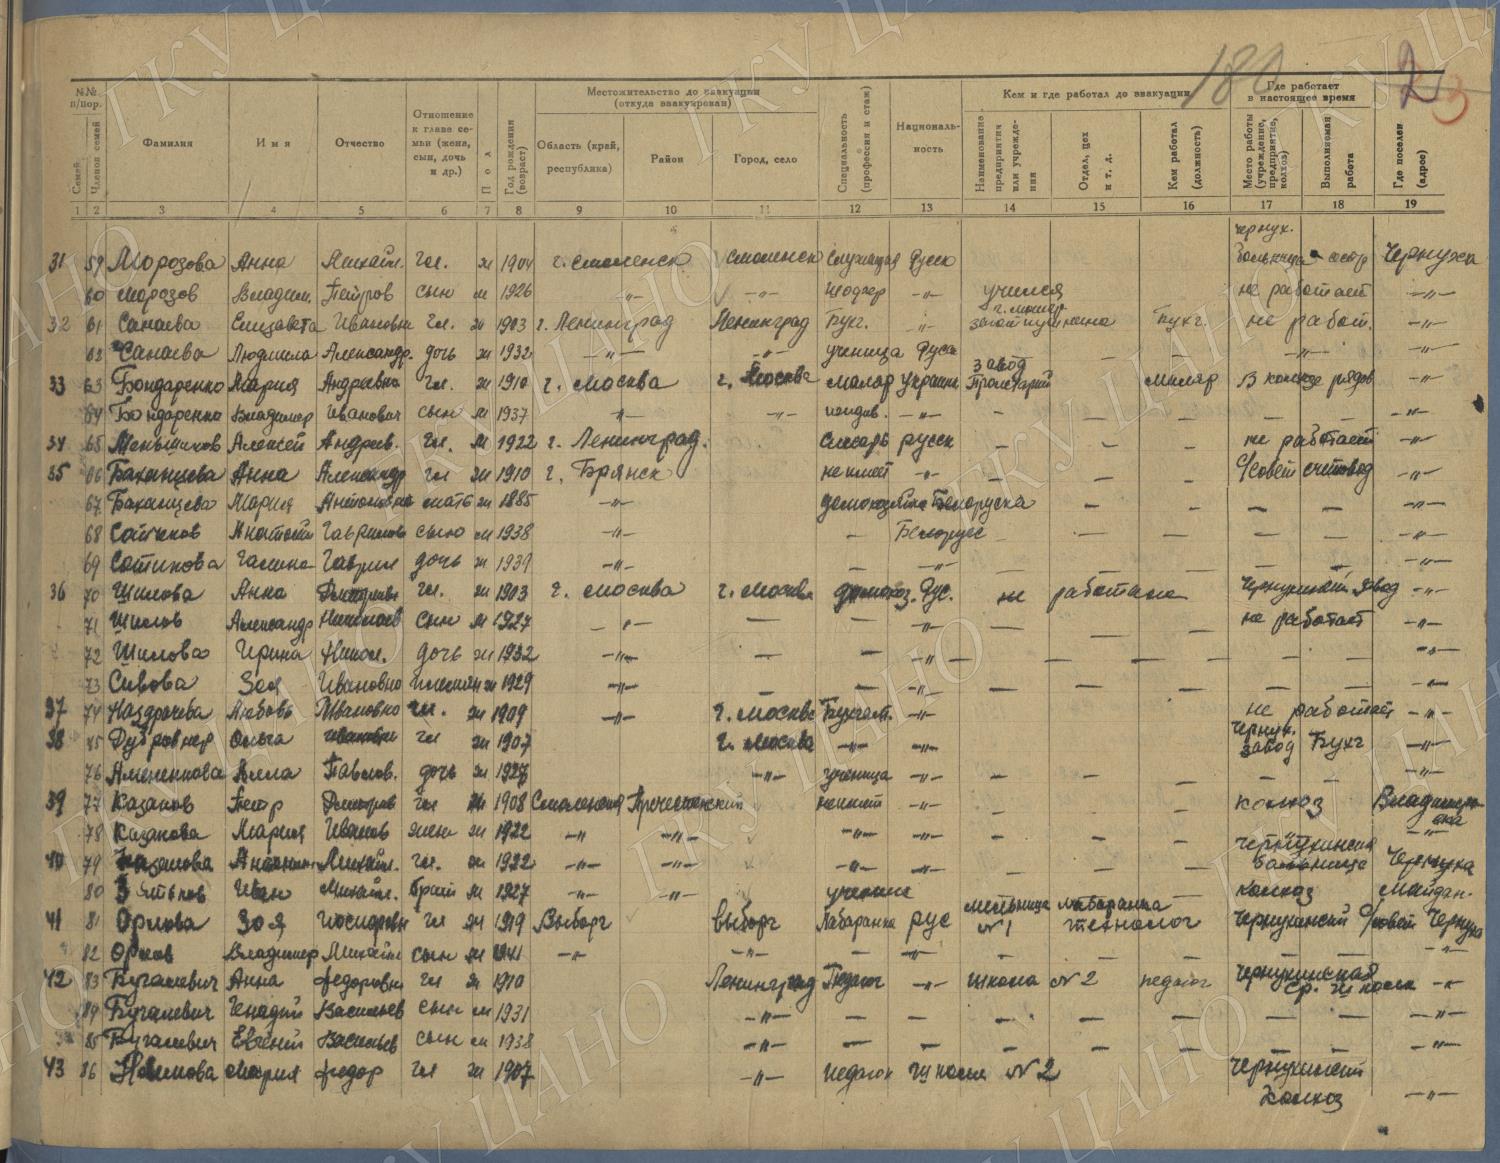 180 2 3
№№ п/пор. Местожительство до эвакуации (откуда эвакуирован) Кем и где работал до эвакуации Где работает в настоящее время
Семей Членов семей Фамилия Имя Отчество Отношение к главе семьи (жена, сын, дочь и др.) Пол Год рождения (возраст) Область (край, республика) Район Город, село Специальность (профессия и стаж) Националь-ность Наименование предприятия или учрежде-ния Отдел, цех и т. д. Кем работал (должность) Место работы (учреждение, предприятие, колхоз) Выполняемая работа Где поселен (адрес)
1 2 3 4 5 6 7 8 9 10 11 12 13 14 15 16 17 18 19
31 59 Морозова Анна Михайл. Гл. ж 1904 г. Смоленск Смоленск Служащая Русск Чернух. больница сестр Чернуха
60 Морозов Владим. Петров сын м 1926 -"- -"- -"- учился не работает -"-
32 61 Санаева Елизавета Ивановн Гл. ж 1903 г. Ленинград Ленинград Бухг. -"- Бухг. не работ. -"-
62 Санаева Людмила Александр. дочь ж 1932 -"- -"- ученица Русск — — -"- -"-
33 63 Бондаренко Мария Андреевна Гл. ж 1910 г. Москва г. Москва маляр украинк завод Пролетарий маляр В колхозе рядов -"-
64 Бондаренко Владимер Иванович сын м 1937 -"- -"- иждив. -"- — — — — — -"-
34 65 Меньшиков Алексей Андреев. Гл. м 1922 г. Ленинград. слесарь русск — — — не работает -"-
35 66 Баханцева Анна Александр Гл ж 1910 г. Брянск не имеет -"- — — — С/совет счетовод -"-
67 Баханцева Мария Антоновна мать ж 1885 -"- домохозяйка Белоруска — — — — — -"-
68 Сотиков Анатолий Гаврилов сын м 1938 -"- — Белорус — — — — — -"-
69 Сотикова Галина Гаврил дочь ж 1939 -"- — -"- — — — — — -"-
36 70 Шилова Анна Дмитриевн Гл. ж 1903 г. Москва г. Москва домохоз. Рус. не работала Чернухинский завод -"-
71 Шилов Александр Николаев сын м 1927 -"- — — -"- — — — не работает -"-
72 Шилова Ирина Никол. дочь ж 1932 -"- — — -"- — — — — — -"-
73 Сивова Зоя Ивановна племян ж 1929 -"- — — -"- — — — — — -"-
37 74 Любовь Ивановна Гл. ж 1909 -"- г. Москва Бухгалт. -"- не работает -"-
38 75 Ольга Гл ж 1907 г. Москва -"- -"- Чернух. завод Бухг -"-
76 Алла Павлов. дочь ж 1927 -"- ученица -"- — — — — — -"-
39 77 Казаков Петр Дмитров Гл 1908 Смоленская Пречистенский не имеет -"- — — — колхоз Владимировка
78 Казакова Мария Иванов жена ж 1922 -"- -"- -"- -"- — — — -"-
40 79 Казакова Антонин Михайл. Гл. ж 1922 -"- -"- -"- — — — — Чернухинская больница Чернуха
80 Иван Михайл. брат м 1927 -"- -"- ученик колхоз Майдан.
41 81 Орлова Зоя Гл ж 1919 Выборг Выборг Лаборанка рус мельница №1 лаборанка технолог Чернухинский с/совет Чернуха
82 Орлов Владимер Михайл сын м 1941 -"- -"- — -"- — — — — — -"-
42 83 Бугалевич Анна Федоровн Гл ж 1910 Ленинград Педагог -"- школа №2 педагог Чернухинская ср. школа -"-
84 Бугалевич Генадий Васильев сын м 1931 -"- — — — — — — — -"-
85 Бугалевич Евгений Васильев сын м 1938 -"- — — — — — — — -"-
43 86 Мария Федор Гл ж 1907 -"- педагог школа №2 Чернухинский колхоз -"-
ГКУ ЦАНО